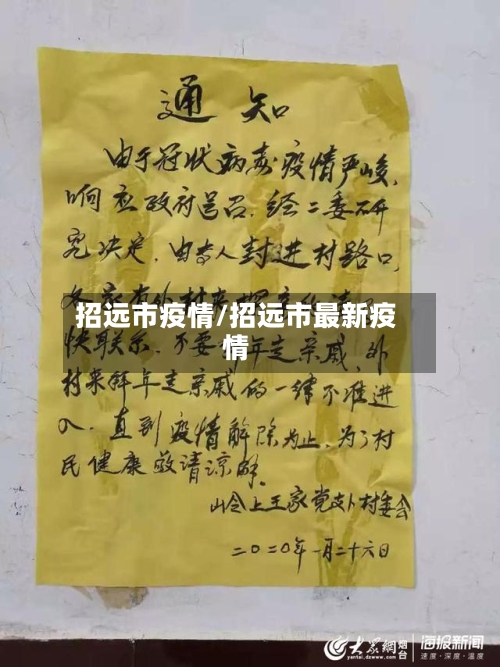 通知
由于冠状病毒疫情严峻,
响应政府号召.经二委研
究决定,由专人封进村路口,
招远市疫情/招远市最新疫
情
快联系.不要
年走亲戚,外
村来拜年走亲戚的一律不准进
入.直到疫情解除为止.为了村
民健康敬请谅解。
岭上王家党支卜村委会
二〇二〇年一月二十六日
大众网 烟台
yantai.dzwww.com
海报新闻
速度·深度·温度